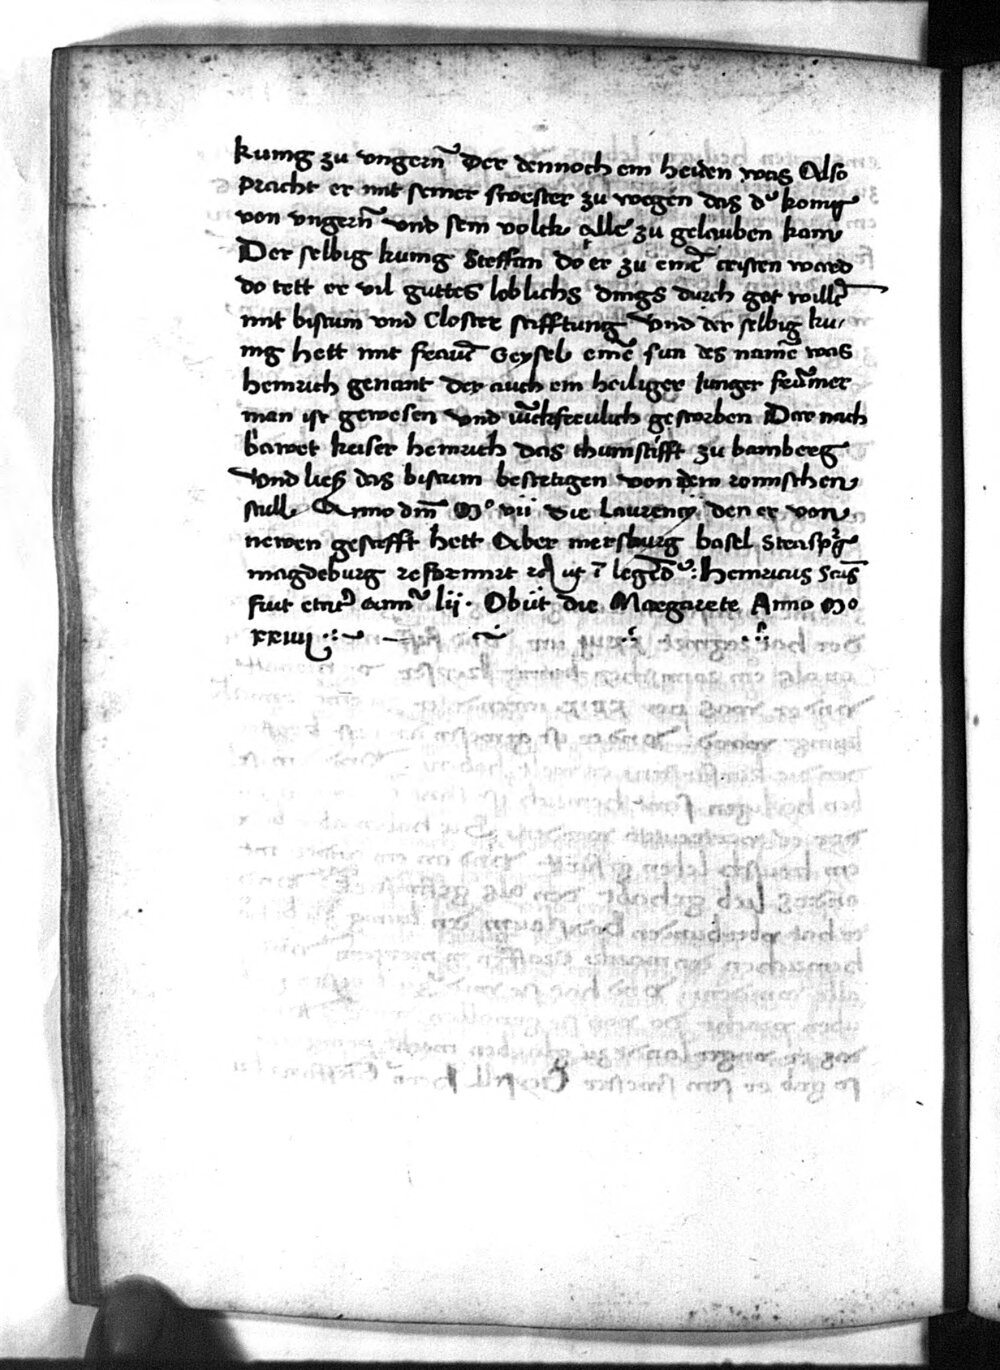 kunig zu vngern̄ Der dennoch ein heiden was Also
pracht er mit seiner swester zu wegen das dʾ konig
von vngern̄ vnd sein volck alle zu gelauben kam
Der selbig kunig Steffan do er zu eineꝛ̄ cristen ward
do tett er vil guttes loblichs dings durch got willē
mit bistum vnd Closter stifftung vnd der selbig ku/
nig hett mit frauē Geysel einē sun des namē was
heinrich genant der auch ein heiliger Junger frūmer
man ist gewesen vnd gestorben Dar nach
bawet keiser heinrich das thumstifft zu bamberg
vnd ließ das bistum bestetigen von dem romischen
stull Anno dm̄ Mº vii die Laurencij den er von
newen gestifft hett Aber mersburg basel Straspʳg
magdeburg reformirt Heinricus Scūs
fuit annoꝝ lii · Obiit die Margarete Anno Mº
xxiiij